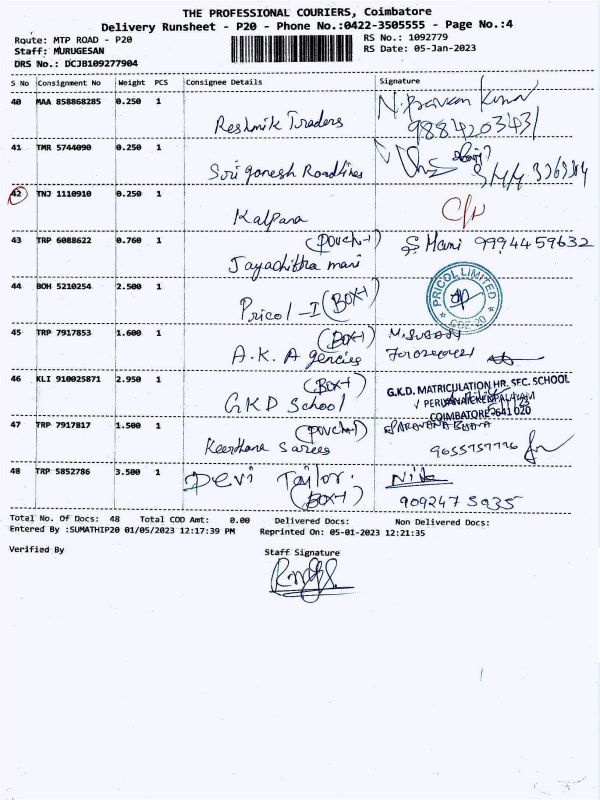 THE PROFESSIONAL COURIERS, Coimbatore
Delivery Runsheet - P20 - Phone No.:0422-3505555 - Page No.:4
Route: MTP ROAD - P20 RS No.: 1092779
Staff: MURUGESAN RS Date: 05-Jan-2023
DRS No.: DCJB109277904
S No Consignment No Weight PCS Consignee Details Signature
40 MAA 858868285 0.250 1 Reshmik Traders N. Praveen Kumar
9884203431
41 TMR 5744090 0.250 1 Sri ganesh Roadlines
42 TNJ 1110910 0.250 1 Kalpana
43 TRP 6088622 0.760 1 (Pouch-1) S. Mani 9994459632
Jayachithra mani
44 BOH 5210254 2.500 1 Pricol - I (BOX-1) PRICOL LIMITED
45 TRP 7917853 1.600 1 (BOX-1)
A.K. Agencies
46 KLI 910025871 2.950 1 (BOX-1) G.K.D. MATRICULATION HR. SEC. SCHOOL
GKD School COIMBATORE-641 020
47 TRP 7917817 1.500 1 (Pouch-1)
Keerthana Sarees
48 TRP 5852786 3.500 1 Devi Taylor.
(BOX-1) 909247 5035
Total No. Of Docs: 48 Total COD Amt: 0.00 Delivered Docs: Non Delivered Docs:
Entered By :SUMATHIP20 01/05/2023 12:17:39 PM Reprinted On: 05-01-2023 12:21:35
Verified By Staff Signature